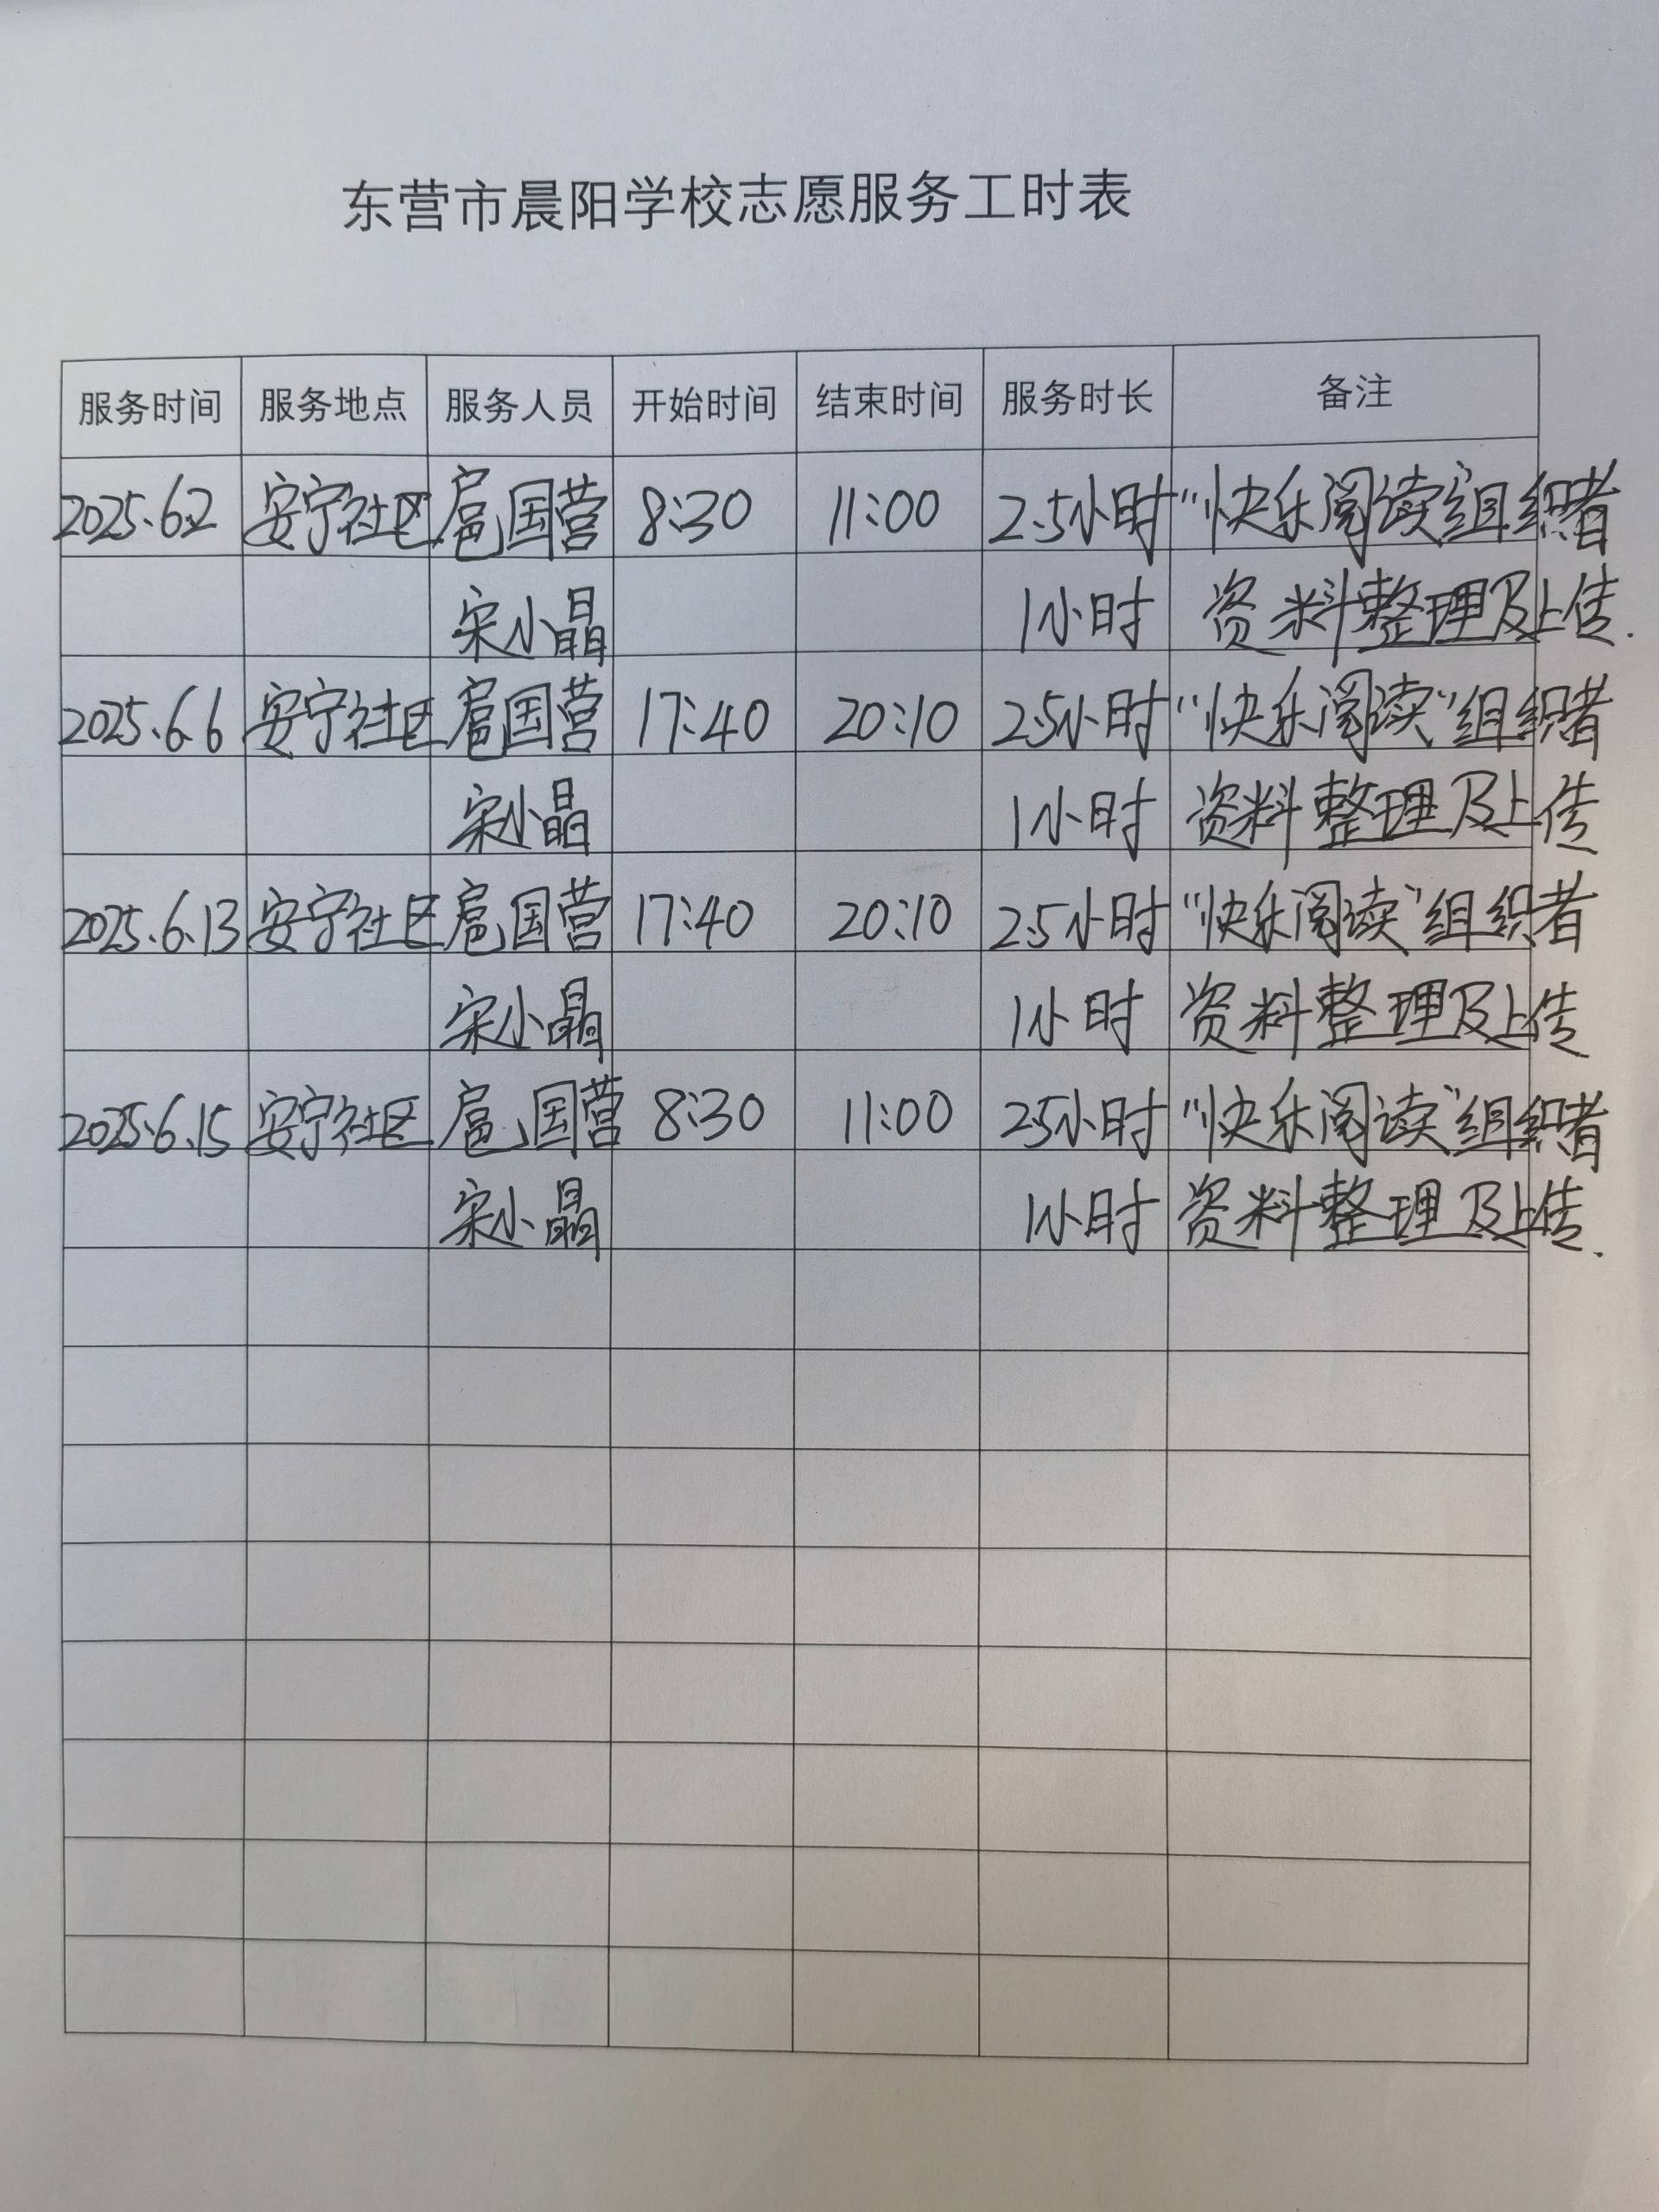 东营市晨阳学校志愿服务工时表
服务时间 服务地点 服务人员 开始时间 结束时间 服务时长 备注
2025.6.2 安宁社区 扈国营 8:30 11:00 2.5小时 "快乐阅读"组织者
宋小晶 1小时 资料整理及上传.
2025.6.6 安宁社区 扈国营 17:40 20:10 2.5小时 "快乐阅读"组织者
宋小晶 1小时 资料整理及上传
2025.6.13 安宁社区 扈国营 17:40 20:10 2.5小时 "快乐阅读"组织者
宋小晶 1小时 资料整理及上传
2025.6.15 安宁社区 扈国营 8:30 11:00 2.5小时 "快乐阅读"组织者
宋小晶 1小时 资料整理及上传.